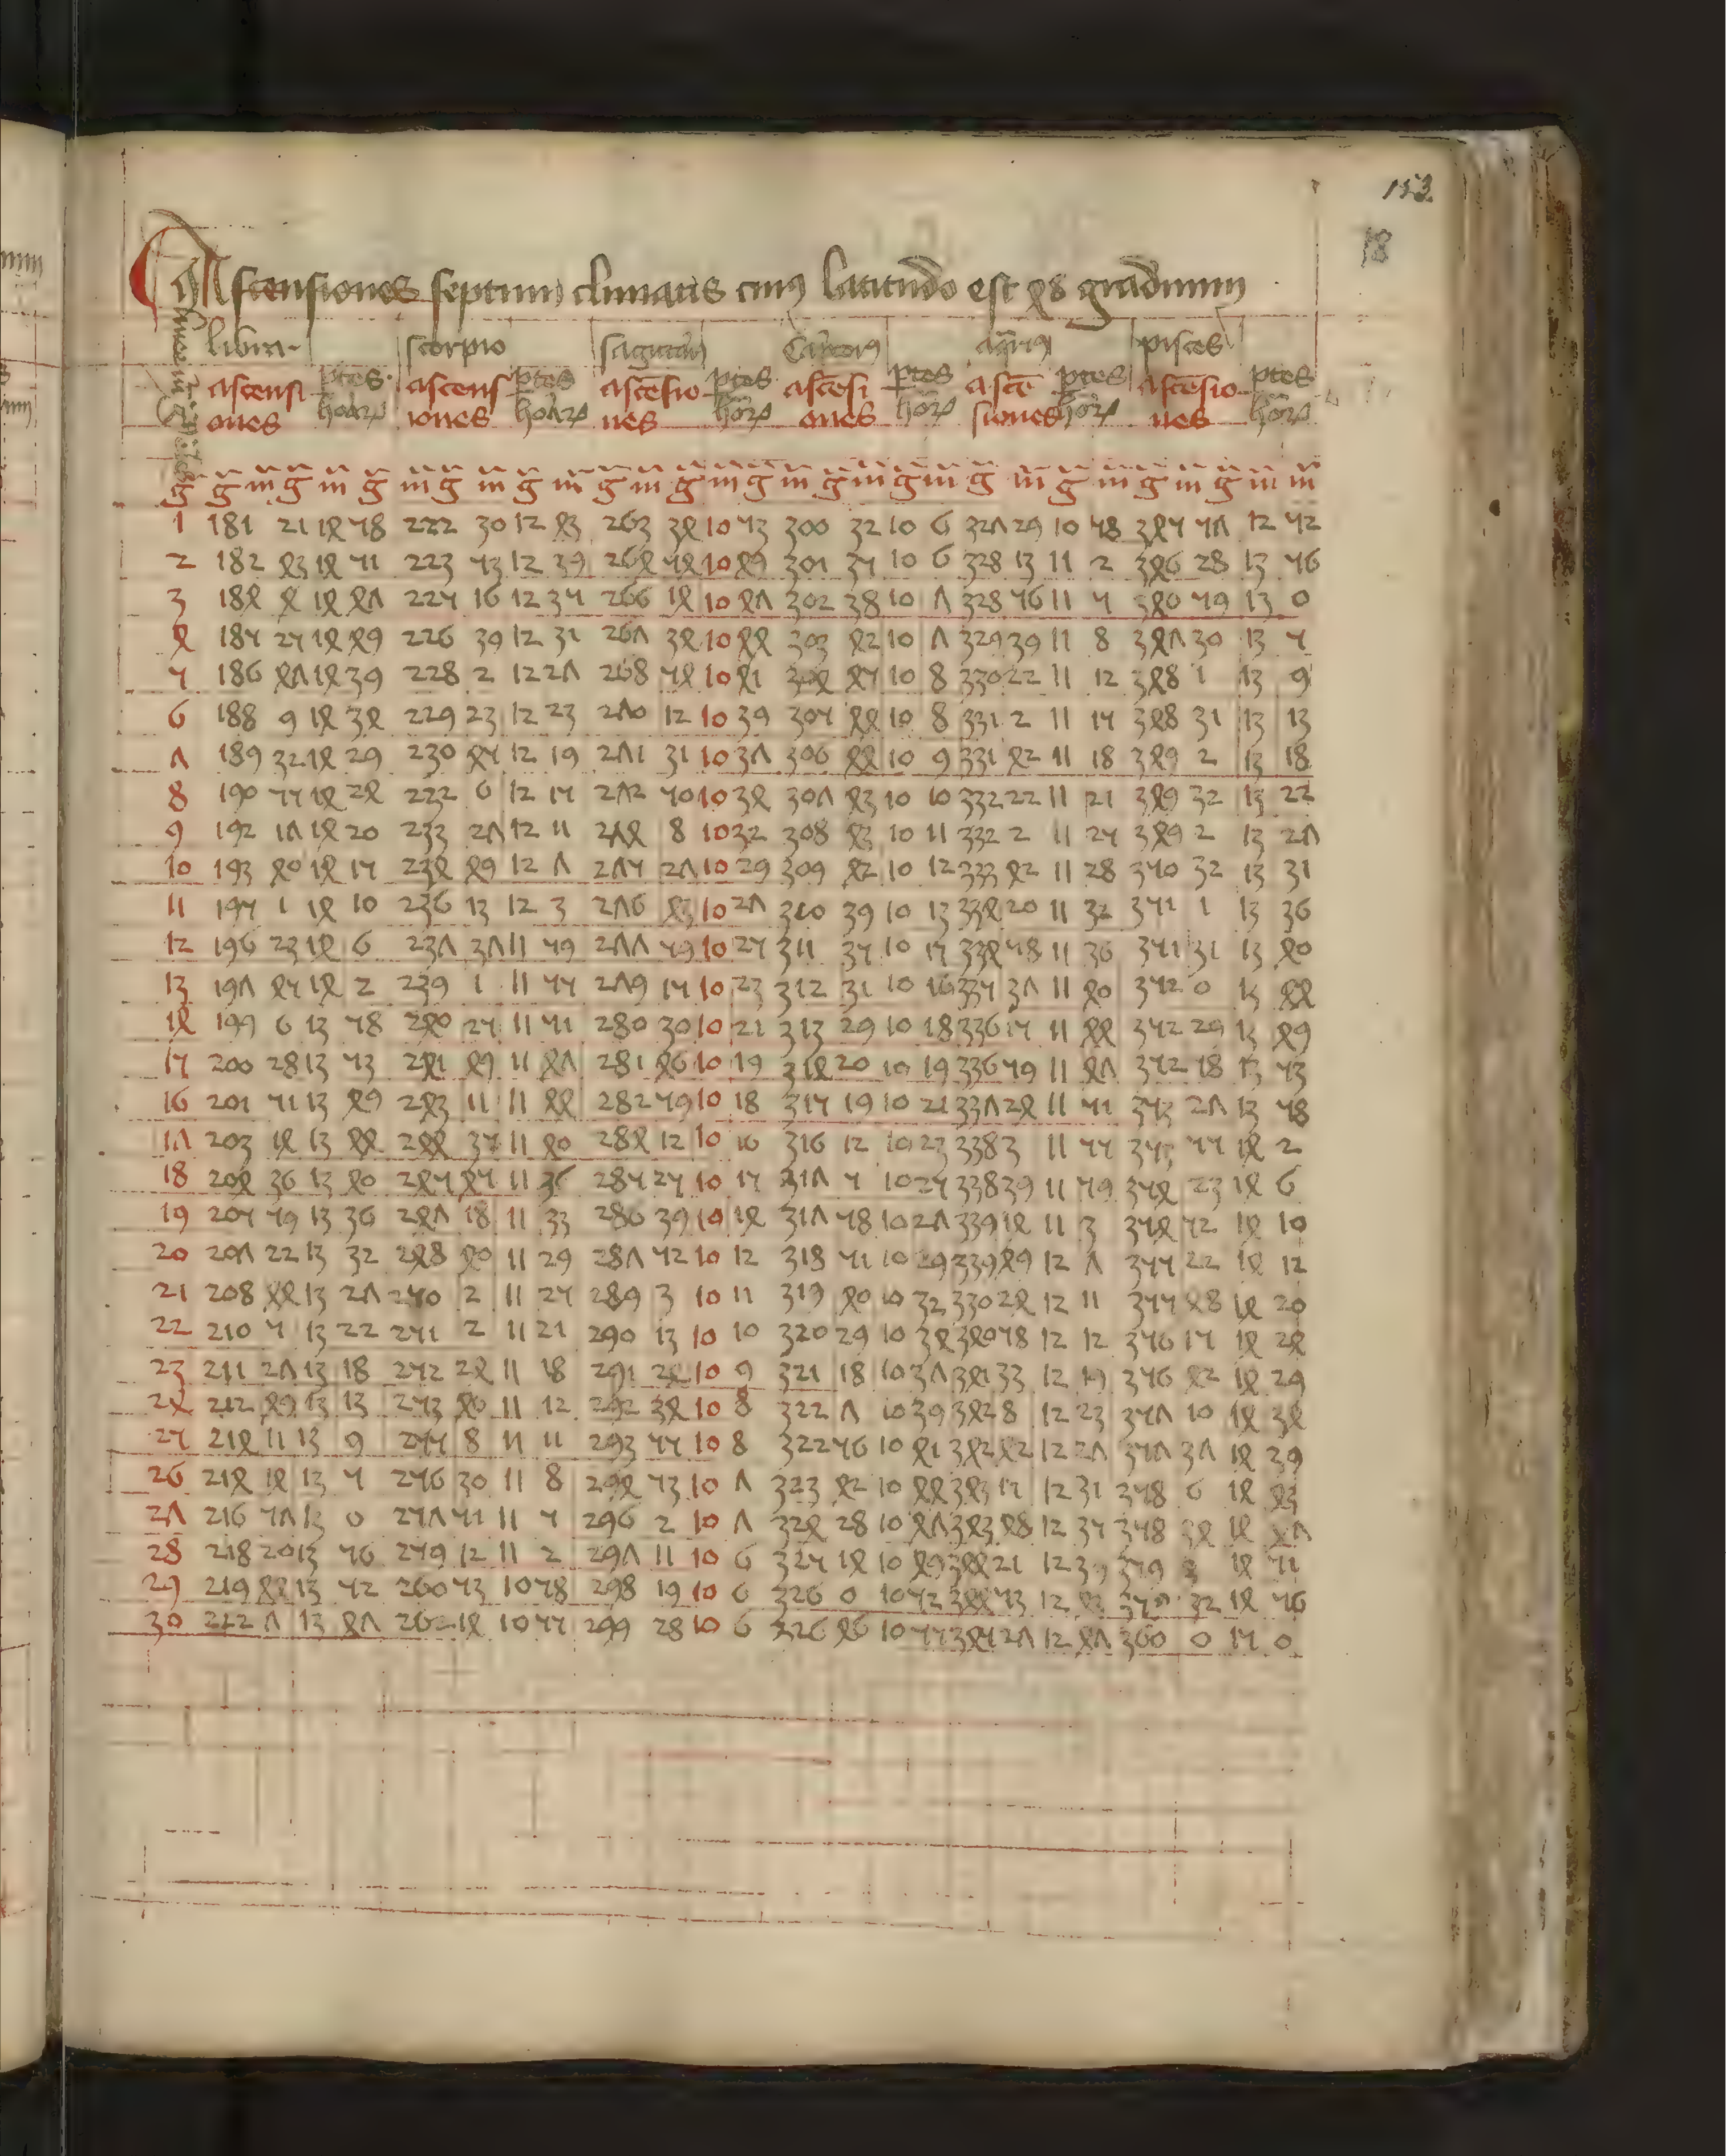 153
18
Ascensiones septimi climatis cuius latitudo est 48 graduum
libra scorpio sagittari Capricornus aquarius pisces
ascensi ptes ascens ptes ascēsio ptes ascēsi ptes ascē ptes ascēsio ptes
ones horar iones horar nes hor ones hor siones hor nes hor
g g m g m g m g m g m g m g m g m g m g m g m g m g m g m m
1 181 21 14 58 222 30 12 43 263 34 10 53 300 32 10 6 327 29 10 58 345 57 12 52
2 182 43 14 51 223 53 12 39 264 54 10 49 301 35 10 6 328 13 11 2 346 28 13 56
3 184 4 14 47 225 16 12 35 266 14 10 47 302 38 10 7 328 56 11 5 340 59 13 0
4 185 25 14 49 226 39 12 31 267 34 10 44 303 42 10 7 329 39 11 8 347 30 13 5
5 186 47 14 39 228 2 12 27 268 54 10 41 304 45 10 8 330 22 11 12 348 1 13 9
6 188 9 14 34 229 23 12 23 270 12 10 39 305 44 10 8 331 2 11 15 348 31 13 13
7 189 32 14 29 230 45 12 19 271 31 10 37 306 44 10 9 331 42 11 18 349 2 13 18
8 190 55 14 24 222 6 12 15 272 50 10 34 307 43 10 10 332 22 11 21 349 32 13 22
9 192 17 14 20 233 27 12 11 274 8 10 32 308 43 10 11 332 2 11 25 349 2 13 27
10 193 40 14 15 234 49 12 7 275 27 10 29 309 42 10 12 333 42 11 28 350 32 13 31
11 195 1 14 10 236 13 12 3 276 43 10 27 310 39 10 13 334 20 11 32 351 1 13 36
12 196 23 14 6 237 37 11 59 277 59 10 25 311 35 10 15 334 58 11 36 351 31 13 40
13 197 45 14 2 239 1 11 55 279 15 10 23 312 31 10 16 335 37 11 40 352 0 13 44
14 199 6 13 58 240 25 11 51 280 30 10 21 313 29 10 18 336 15 11 44 352 29 13 49
15 200 28 13 53 241 49 11 47 281 46 10 19 314 20 10 19 336 59 11 47 352 18 13 53
16 201 51 13 49 243 11 11 44 282 59 10 18 315 19 10 21 337 24 11 51 353 27 13 58
17 203 14 13 44 244 35 11 40 284 12 10 16 316 12 10 23 338 3 11 55 353 55 14 2
18 204 36 13 40 245 45 11 36 285 25 10 15 317 5 10 25 338 39 11 59 354 23 14 6
19 205 59 13 36 247 18 11 33 286 39 10 14 317 58 10 27 339 14 11 3 354 52 14 10
20 207 22 13 32 248 40 11 29 287 52 10 12 318 51 10 29 339 49 12 7 355 22 14 12
21 208 44 13 27 250 2 11 25 289 3 10 11 319 40 10 32 330 24 12 11 355 48 14 20
22 210 5 13 22 251 2 11 21 290 13 10 10 320 29 10 34 340 58 12 12 356 15 14 24
23 211 27 13 18 252 24 11 18 291 24 10 9 321 18 10 37 341 33 12 19 356 42 14 29
24 212 49 13 13 253 46 11 12 292 34 10 8 322 7 10 39 342 8 12 23 357 10 14 34
25 214 11 13 9 255 8 11 11 293 55 10 8 322 56 10 41 342 42 12 27 357 37 14 39
26 214 14 13 5 256 30 11 8 294 53 10 7 323 42 10 44 343 15 12 31 358 6 14 43
27 216 57 13 0 257 51 11 5 296 2 10 7 324 28 10 47 343 48 12 35 358 34 14 47
28 218 20 13 56 259 12 11 2 297 11 10 6 325 14 10 49 344 21 12 39 359 3 14 51
29 219 44 13 52 260 53 10 58 298 19 10 6 326 0 10 52 344 53 12 43 359 32 14 56
30 222 7 13 47 262 14 10 55 299 28 10 6 326 46 10 55 345 27 12 47 360 0 15 0